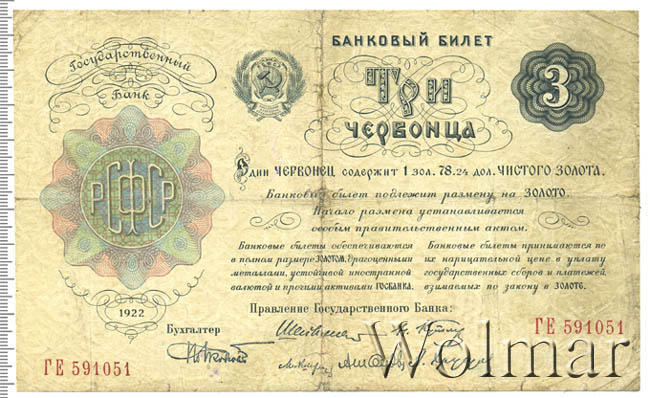 Государственный
Банк
БАНКОВЫЙ БИЛЕТ
ТРИ
ЧЕРВОНЦА
3
РСФСР
1922
Один ЧЕРВОНЕЦ содержит 1 зол. 78.24 дол. ЧИСТОГО ЗОЛОТА.
Банковый билет подлежит размену на ЗОЛОТО.
Начало размена устанавливается
особым правительственным актом.
Банковые билеты обеспечиваются
в полном размере ЗОЛОТОМ, драгоценными
металлами, устойчивой иностранной
валютой и прочими активами ГОСБАНКА.
Банковые билеты принимаются по
их нарицательной цене в уплату
государственных сборов и платежей,
взимаемых по закону в ЗОЛОТЕ.
Правление Государственного Банка:
Бухгалтер
ГЕ 591051
ГЕ 591051
Wolmar